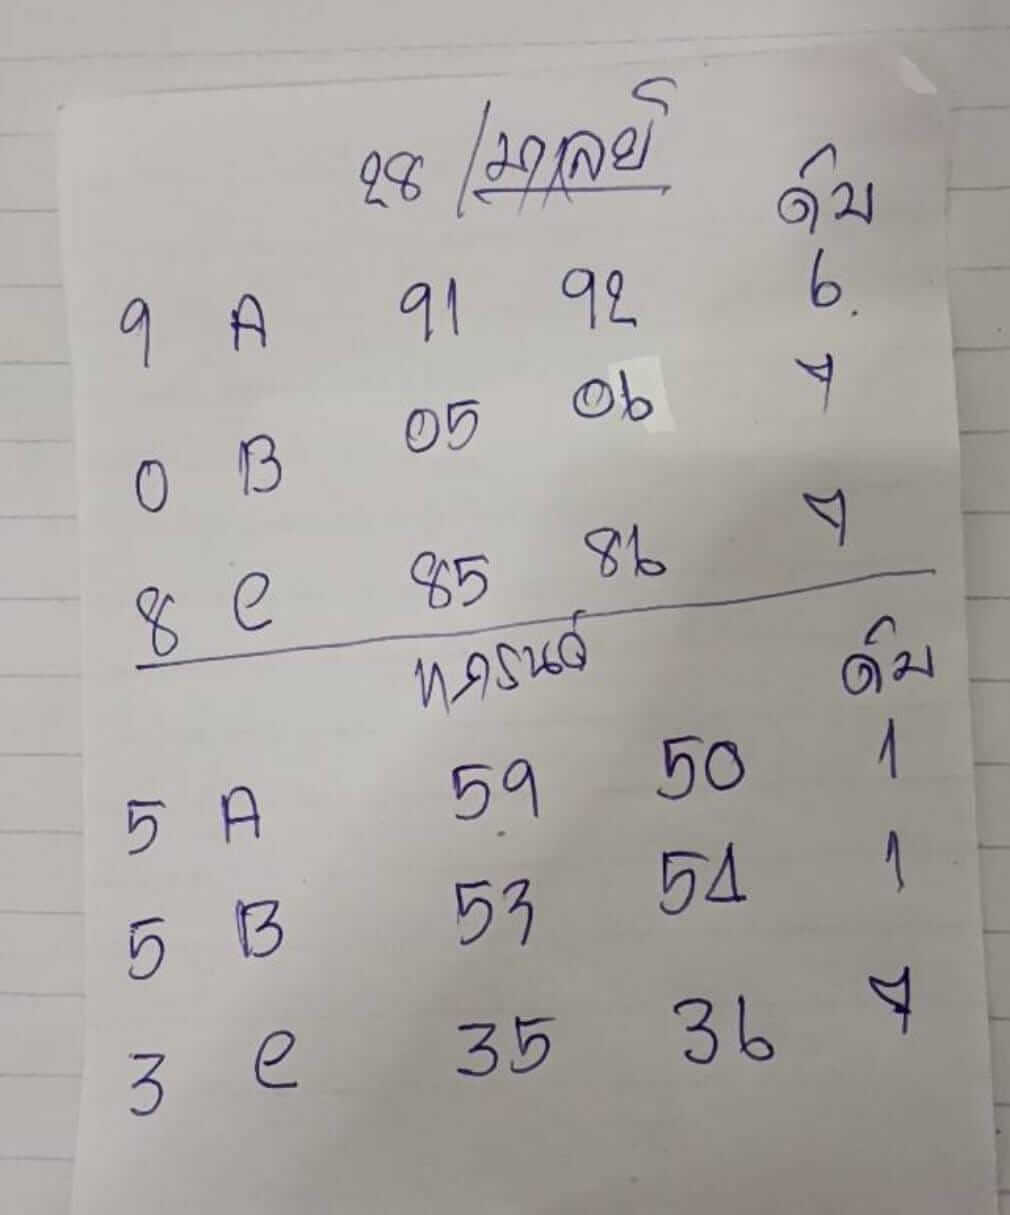 28 /มาเลย์
ดับ
9 A 91 92 6.
0 B 05 06 7
8 C 85 86 7
ดับ
5 A 59 50 1
5 B 53 54 1
3 C 35 36 7